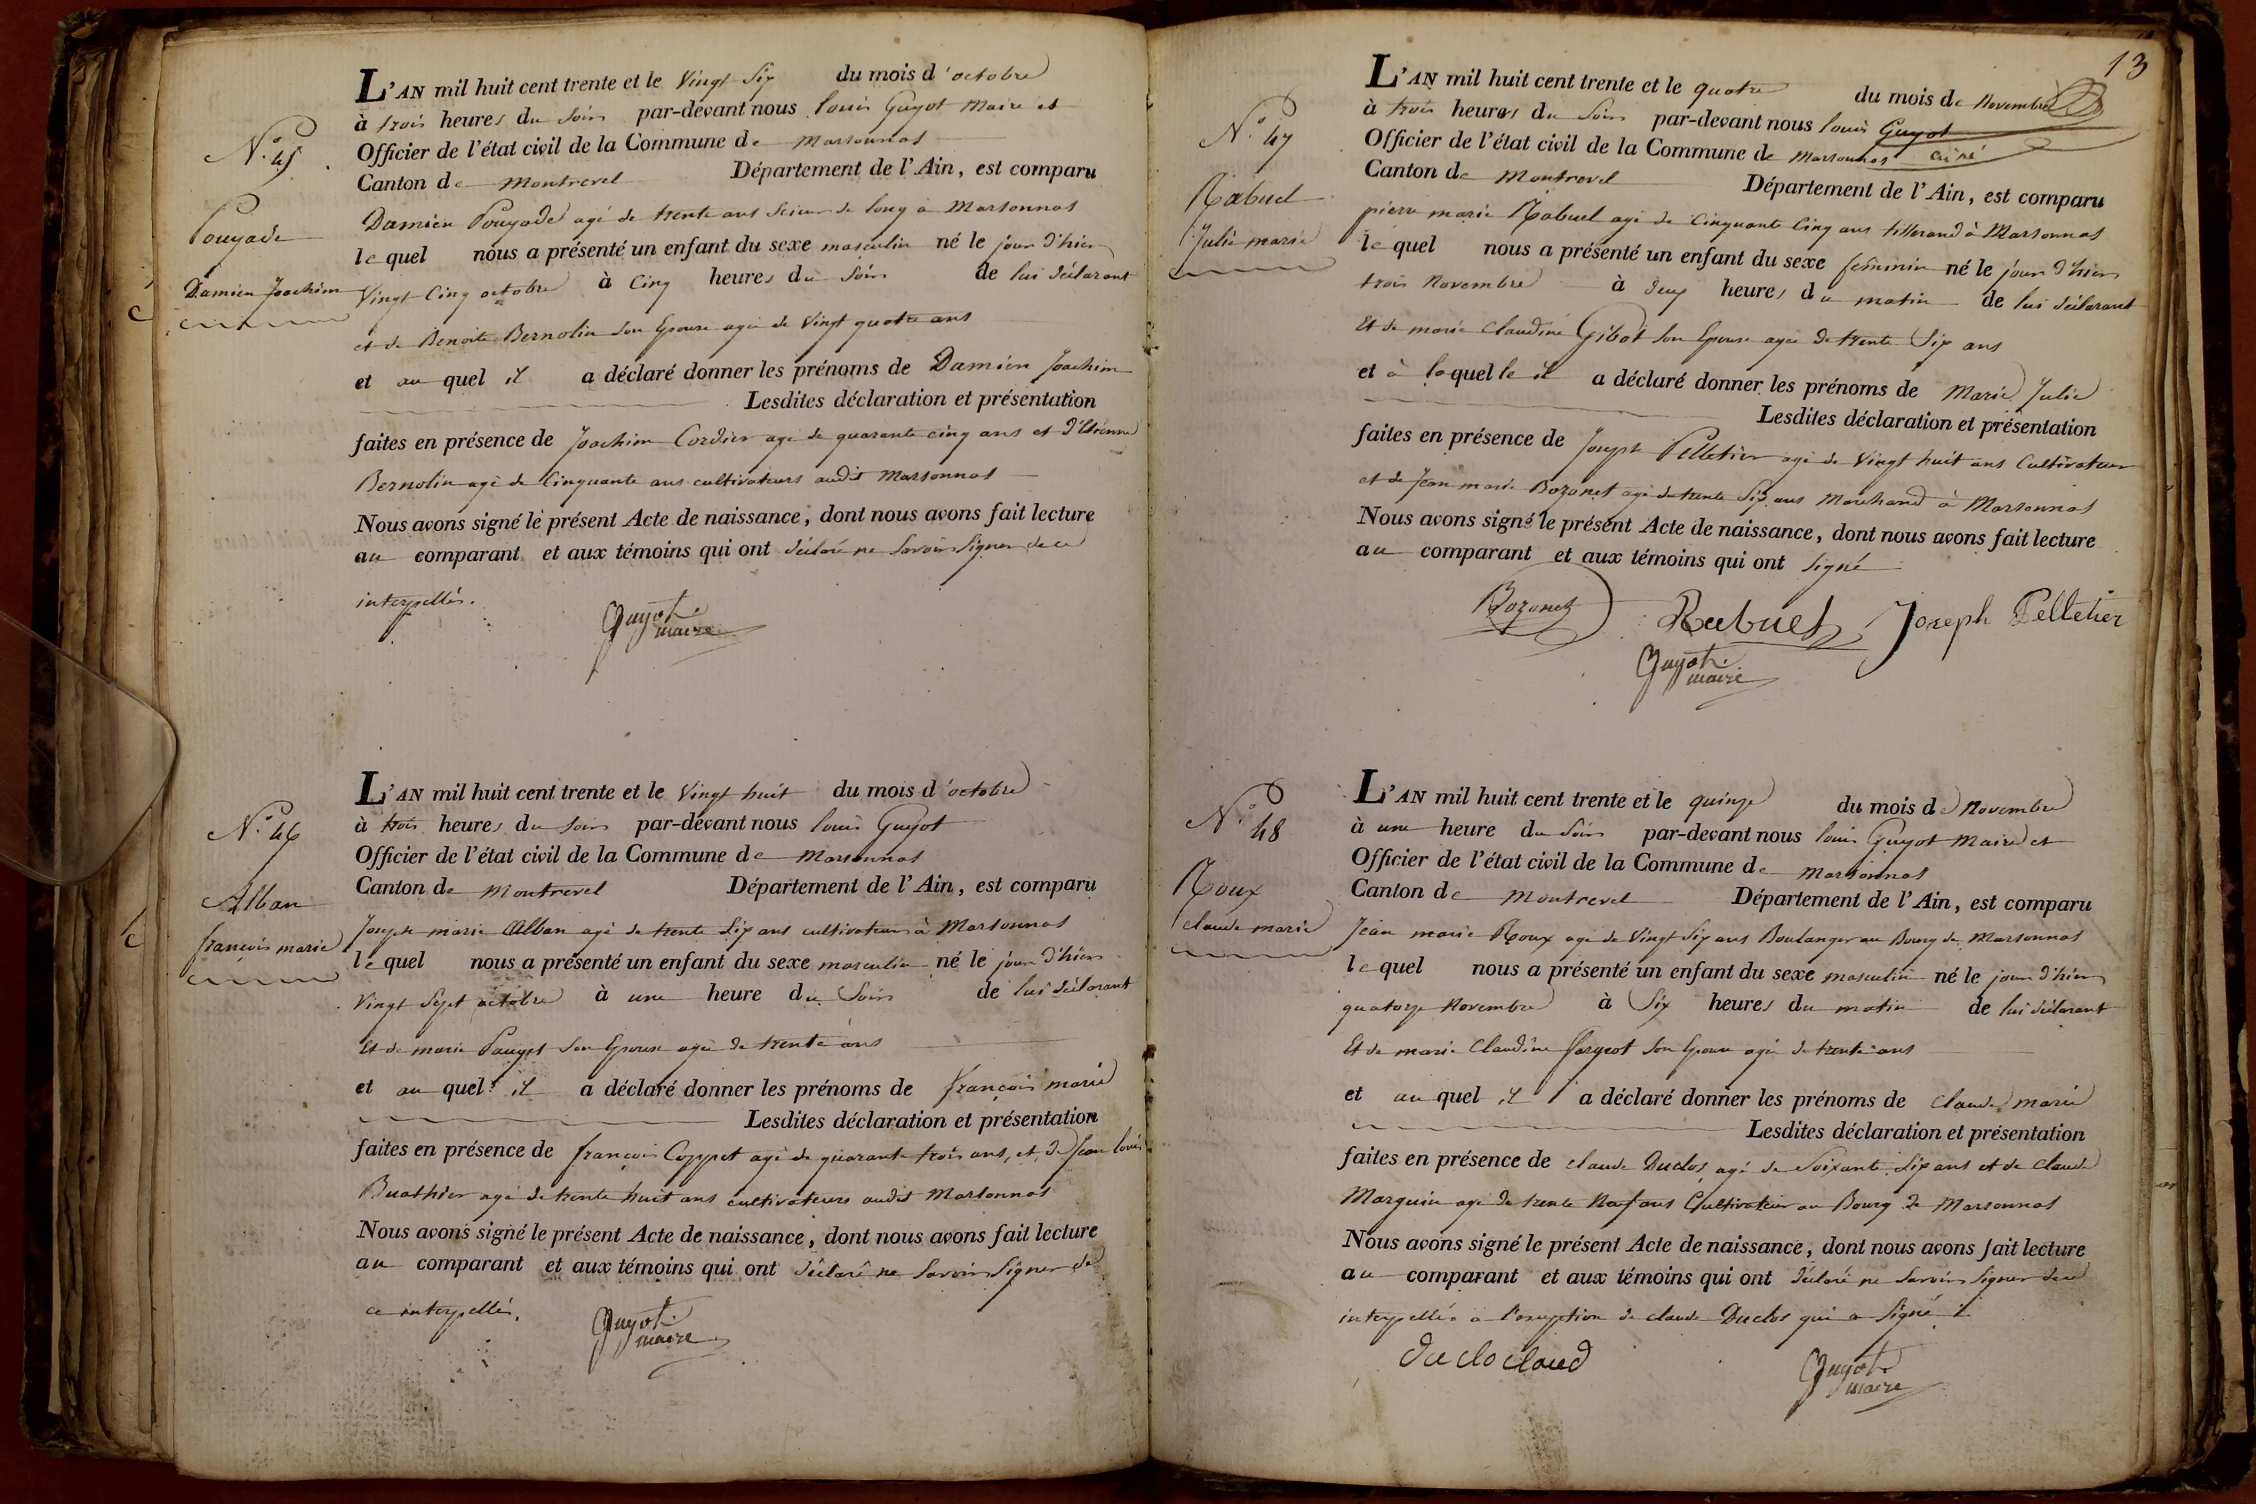 N.° 45
Pouyade
Damien Joachim
L'AN mil huit cent trente et le Vingt Six du mois d'octobre
à trois heures du Soir par-devant nous louis Guyot Maire et
Officier de l'état civil de la Commune de Marsonnas
Canton de Montrevel Département de l'Ain, est comparu
Damien Pouyade agé de trente ans Scieur de long à Marsonnas
lequel nous a présenté un enfant du sexe masculin né le jour d'hier
Vingt Cinq octobre à Cinq heures du Soir de lui déclarant
et de Benoite Bernolin son Epouse agée de Vingt quatre ans
et au quel il a déclaré donner les prénoms de Damien Joachim
Lesdites déclaration et présentation
faites en présence de Joachim Cordier agé de quarante cinq ans et d'Etienne
Bernolin agé de Cinquante ans cultivateurs audit Marsonnas
Nous avons signé le présent Acte de naissance, dont nous avons fait lecture
au comparant et aux témoins qui ont déclaré ne Savoir Signer de ce
interpellés.
Guyot
maire
N.° 46
Alban
françois marie
L'AN mil huit cent trente et le Vingt huit du mois d'octobre
à trois heures du Soir par-devant nous louis Guyot
Officier de l'état civil de la Commune de Marsonnas
Canton de Montrevel Département de l'Ain, est comparu
Joseph marie Alban agé de trente Six ans cultivateur à Marsonnas
lequel nous a présenté un enfant du sexe masculin né le jour d'hier
Vingt Sept octobre à une heure du Soir de lui déclarant
Et de marie Pauget Son Epouse agée de trente ans
et au quel il a déclaré donner les prénoms de françois marie
Lesdites déclaration et présentation
faites en présence de françois Coppet agé de quarante trois ans, et de Jean louis
Buathier agé de trente huit ans cultivateurs audit Marsonnas
Nous avons signé le présent Acte de naissance, dont nous avons fait lecture
au comparant et aux témoins qui ont déclaré ne Savoir Signer de
ce interpellés.
Guyot
maire
13
N.° 47
Rabuel
Julie marie
L'AN mil huit cent trente et le quatre du mois de Novembre
à trois heures du Soir par-devant nous louis Guyot
Officier de l'état civil de la Commune de Marsonnas
Canton de Montrevel Département de l'Ain, est comparu
pierre marie Rabuel agé de Cinquante Cinq ans tisserand à Marsonnas
lequel nous a présenté un enfant du sexe féminin né le jour d'hier
trois Novembre à deux heures du matin de lui déclarant
Et de marie Claudine Gibot Son Epouse agée de trente Six ans
et à laquelle il a déclaré donner les prénoms de Marie Julie
Lesdites déclaration et présentation
faites en présence de Joseph Pelletier agé de Vingt huit ans Cultivateur
et de Jean marie Bozonet agé de trente Six ans Marchand à Marsonnas
Nous avons signé le présent Acte de naissance, dont nous avons fait lecture
au comparant et aux témoins qui ont Signé
Bozonet Rabuel Joseph Pelletier
Guyot
maire
N.° 48
Roux
claude marie
L'AN mil huit cent trente et le quinze du mois de Novembre
à une heure du Soir par-devant nous louis Guyot Maire et
Officier de l'état civil de la Commune de Marsonnas
Canton de Montrevel Département de l'Ain, est comparu
Jean marie Roux agé de Vingt Six ans Boulanger au Bourg de Marsonnas
lequel nous a présenté un enfant du sexe masculin né le jour d'hier
quatorze Novembre à Six heures du matin de lui déclarant
Et de marie Claudine fargeot Son Epouse agée de trente ans
et au quel il a déclaré donner les prénoms de claude marie
Lesdites déclaration et présentation
faites en présence de claude Duclos agé de Soixante Six ans et de claude
Marguin agé de trente Neuf ans Cultivateur au Bourg de Marsonnas
Nous avons signé le présent Acte de naissance, dont nous avons fait lecture
au comparant et aux témoins qui ont déclaré ne Savoir Signer de ce
interpellés à l'exception de claude Duclos qui a Signé
du clo cloud
Guyot
maire